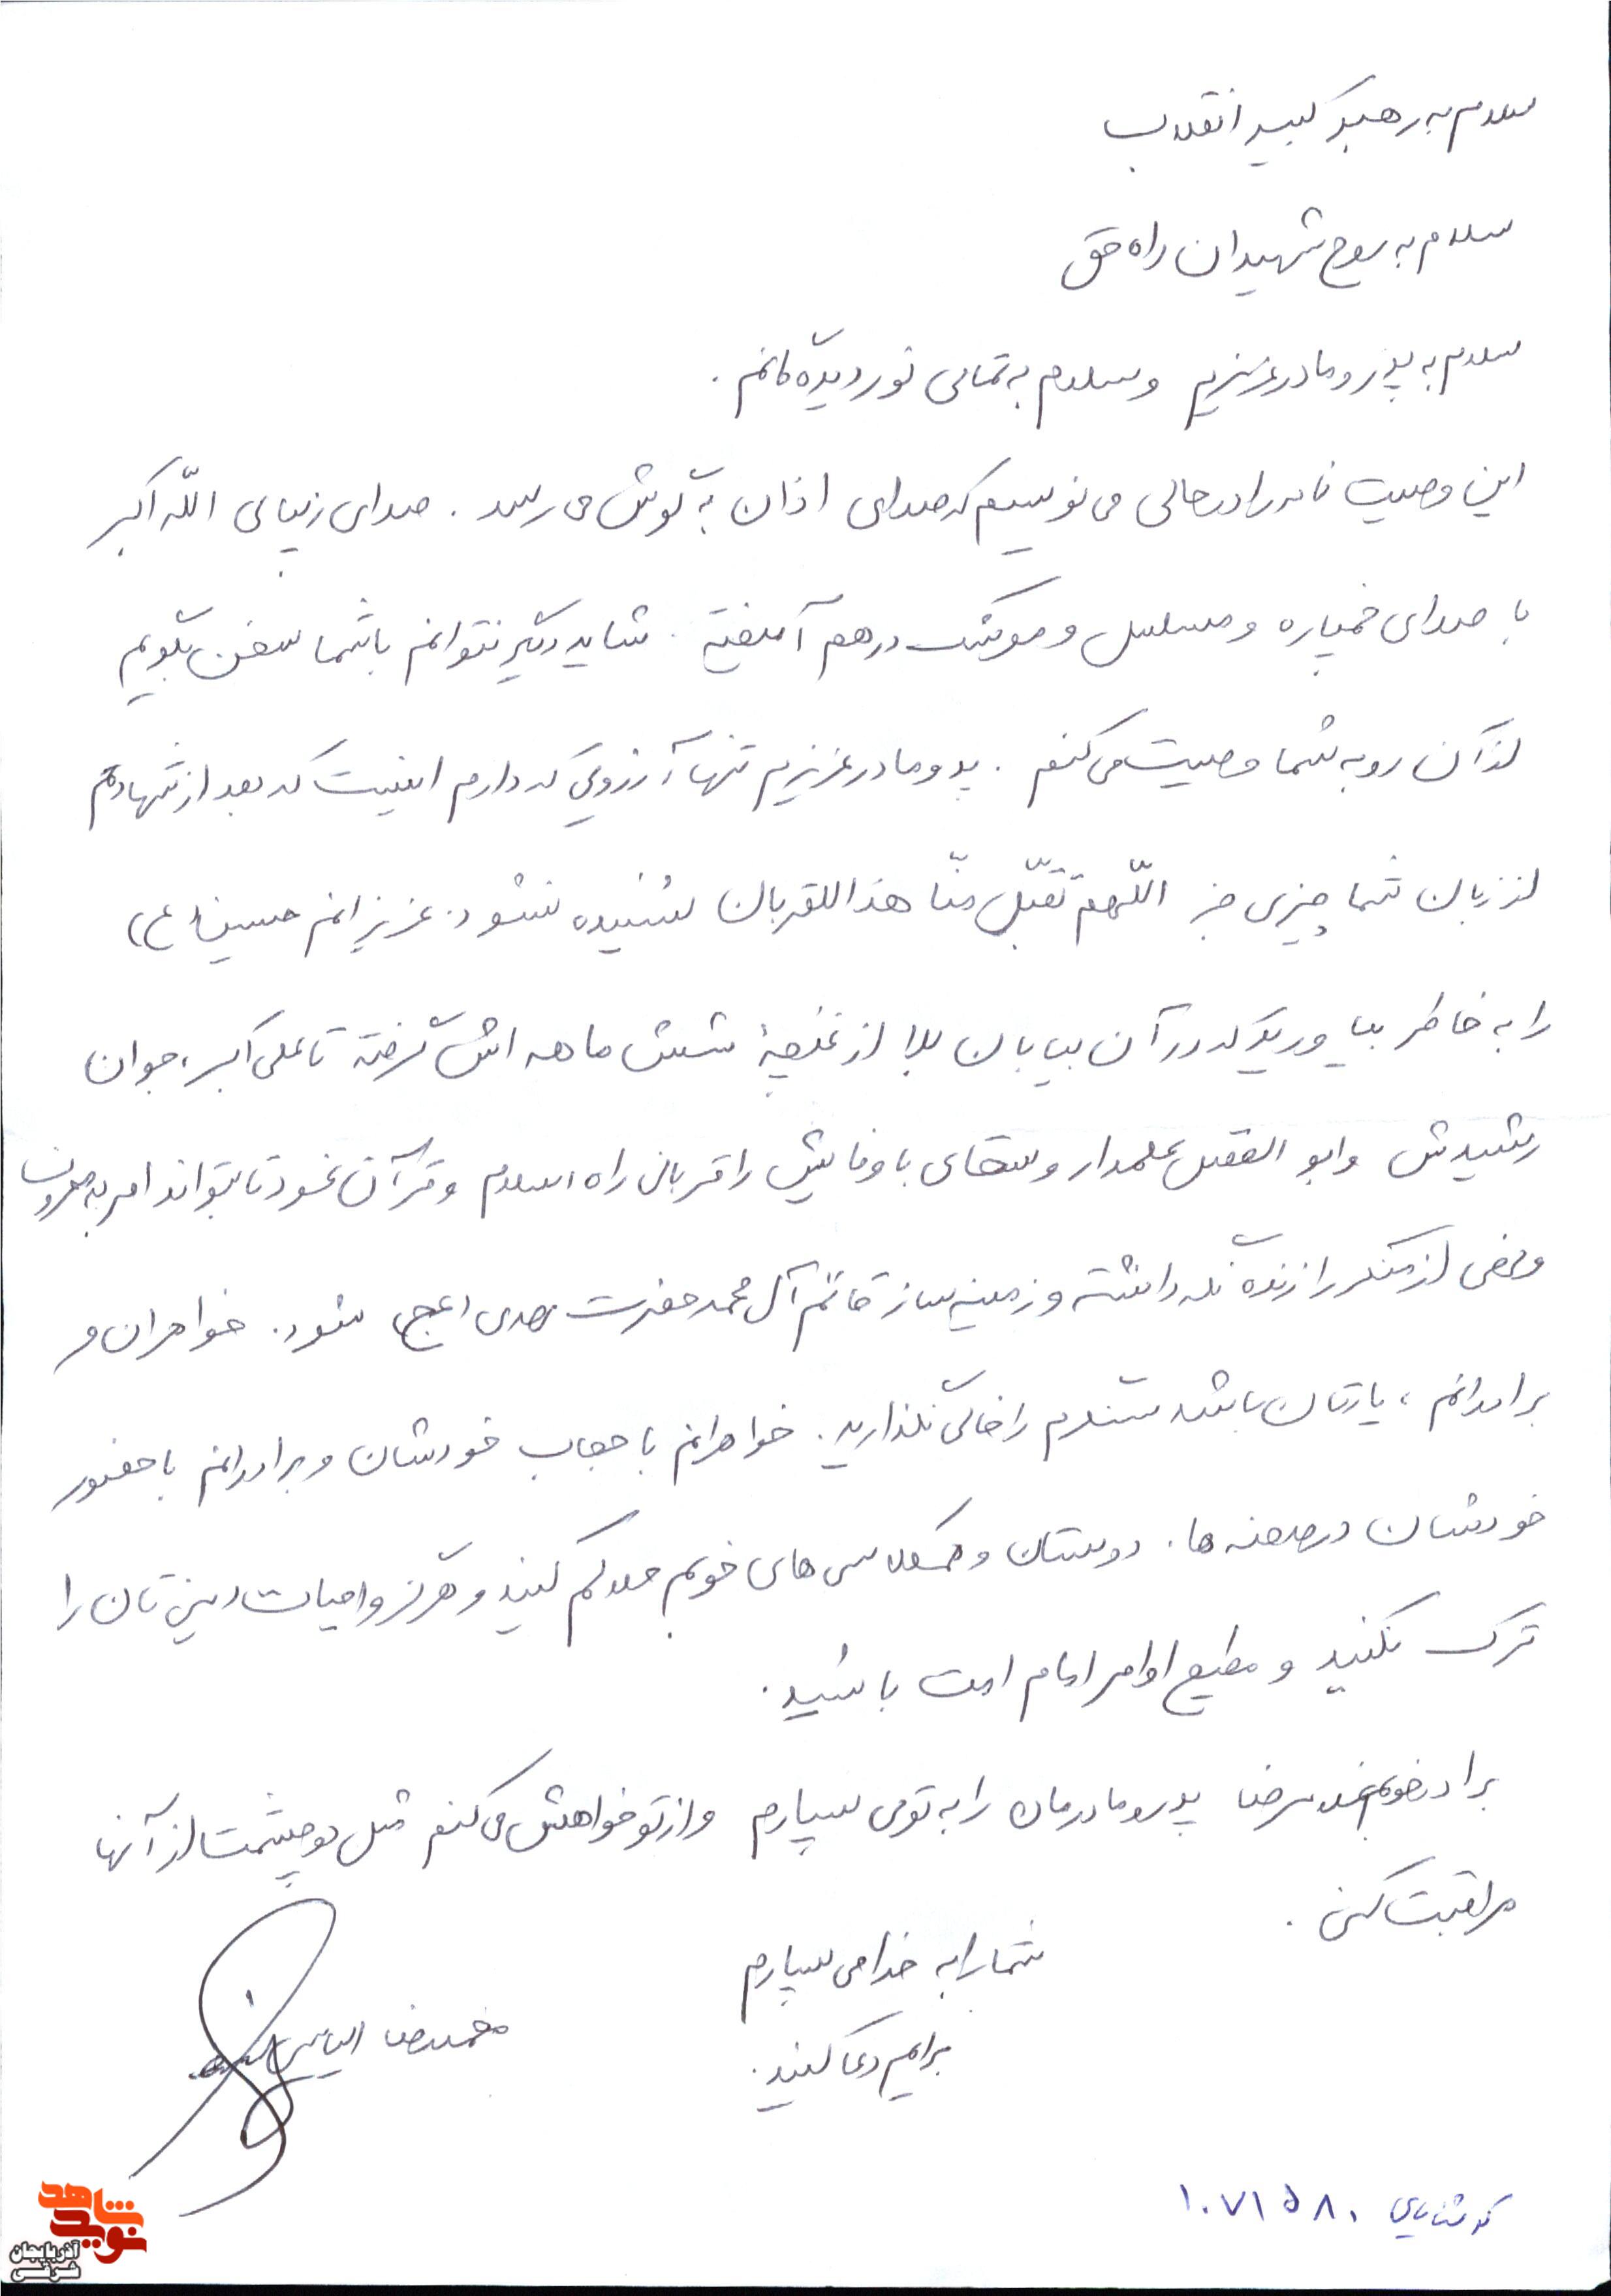 سلام به رهبر کبیر انقلاب
سلام به روح شهیدان راه حق
سلام به پدر و مادر عزیزم و سلام به تمامی نور دیدگانم.
این وصیت نامه را در حالی می نویسم که صدای اذان به گوش می رسد. صدای زیبای الله اکبر
با صدای خمپاره و مسلسل و موشک در هم آمیخته. شاید دیگر نتوانم با شما سخن بگویم
از آن رو به شما وصیت می کنم. پدر و مادر عزیزم تنها آرزویی که دارم اینست که بعد از شهادتم
از زبان شما چیزی جز اللّهم تقبّل منّا هذا القربان شنیده نشود. عزیزانم حسین (ع)
را به خاطر بیاورید که در آن بیابان بلا از غنچهٔ شش ماهه اش گرفته تا علی اکبر، جوان
رشیدش و ابوالفضل علمدار و سقای باوفایش را قربانی راه اسلام و قرآن نمود تا بتواند امر به معروف
و نهی از منکر را زنده نگه داشته و زمینه ساز قائم آل محمد حضرت مهدی (عج) شود. خواهران و
برادرانم، یادتان باشد سنگرم را خالی نگذارید. خواهرانم با حجاب خودشان و برادرانم با حضور
خودشان در صحنه ها. دوستان و همکلاسی های خوبم حلالم کنید و هرگز واجبات دینی تان را
ترک نکنید و مطیع اوامر امام امت باشید.
برادر خوبم پدر و مادرمان را به تو می سپارم و از تو خواهش می کنم مثل دو چشمت از آنها
مراقبت کنی.
شما را به خدا می سپارم
برایم دعا کنید.
محمدرضا الیاسی
کد شناسایی ۱۰۷۱۵۸۰
نوید شاهد
آذربایجان شرقی